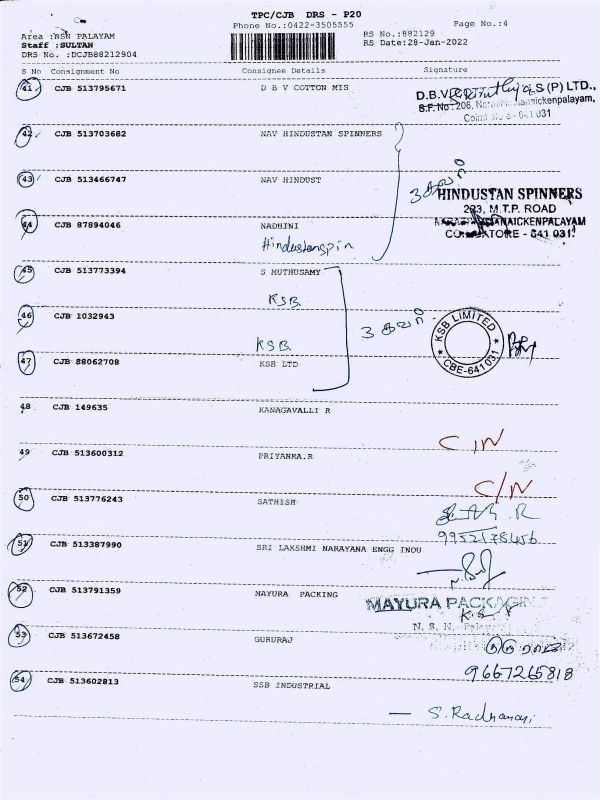 TPC/CJB DRS - P20
Phone No.:0422-3505555
Page No.:4
Area :NSN PALAYAM
RS No.:882129
Staff :SULTAN
RS Date:28-Jan-2022
DRS No. :DCJB88212904
S No Consignment No Consignee Details Signature
41 CJB 513795671 D B V COTTON MIS
D.B.V. LS (P) LTD.,
S.F. No : 206, Naickenpalayam,
641 031
42 CJB 513703682 NAV HINDUSTAN SPINNERS
43 CJB 513466747 NAV HINDUST
3 கவர்
HINDUSTAN SPINNERS
283, M.T.P. ROAD
NAICKENPALAYAM
COIMBATORE - 641 031.
44 CJB 87894046 NADHINI
Hindustanspin
45 CJB 513773394 S MUTHUSAMY
KSB.
46 CJB 1032943
3 கவர்
KSB LIMITED
CBE-641 031
KSB.
47 CJB 88062708 KSB LTD
48 CJB 149635 KANAGAVALLI R
C/N
49 CJB 513600312 PRIYANKA.R
C/N
50 CJB 513776243 SATHISH
R
9952178456
51 CJB 513387990 SRI LAKSHMI NARAYANA ENGG INDU
52 CJB 513791359 MAYURA PACKING
MAYURA PACKAGIN
N. S. N.
53 CJB 513672458 GURURAJ
9667265818
54 CJB 513602813 SSB INDUSTRIAL
— S. Radhamani